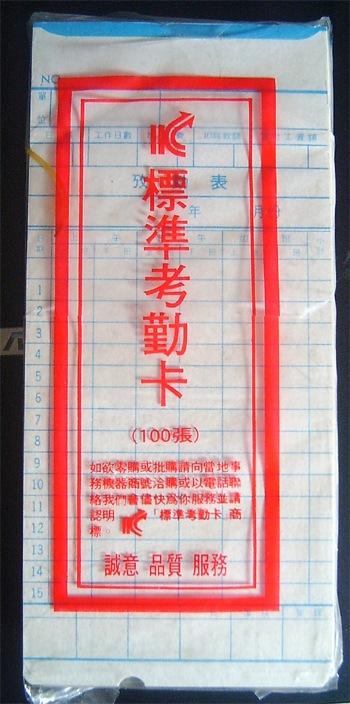 NO
單
工作日數
攷 表
年 月份
標準考勤卡
(100張)
如欲零購或批購請向當地事
務機器商號洽購或以電話聯
絡我們會儘快為你服務並請
認明 「標準考勤卡」商
標。
誠意 品質 服務
1
2
3
4
5
6
7
8
9
10
11
12
13
14
15